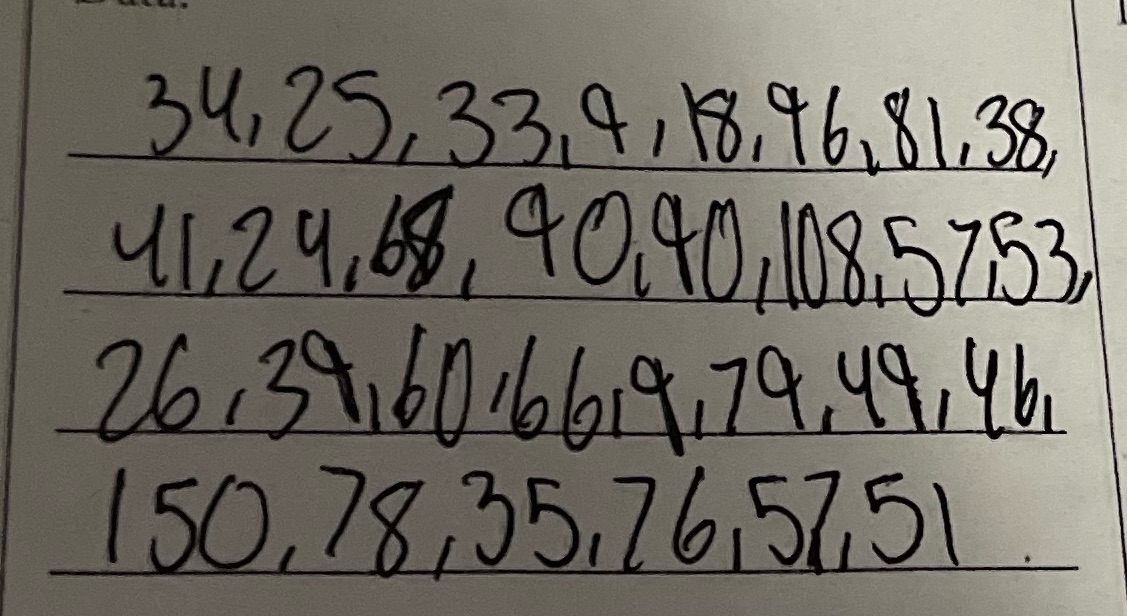 34, 25, 33, 9, 18, 96, 81, 38,
41, 24, 68, 90, 90, 108, 57, 53,
26, 39, 60, 66, 9, 79, 49, 46,
150, 78, 35, 76, 57, 51